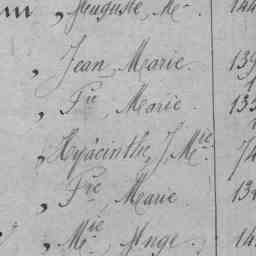 , Auguste, Me 144
, Jean Marie. 139
, Fcs Marie 133
, Hyacinthe, J. Mie 74
, Fcs Marie 13
, Mie Ange. 14